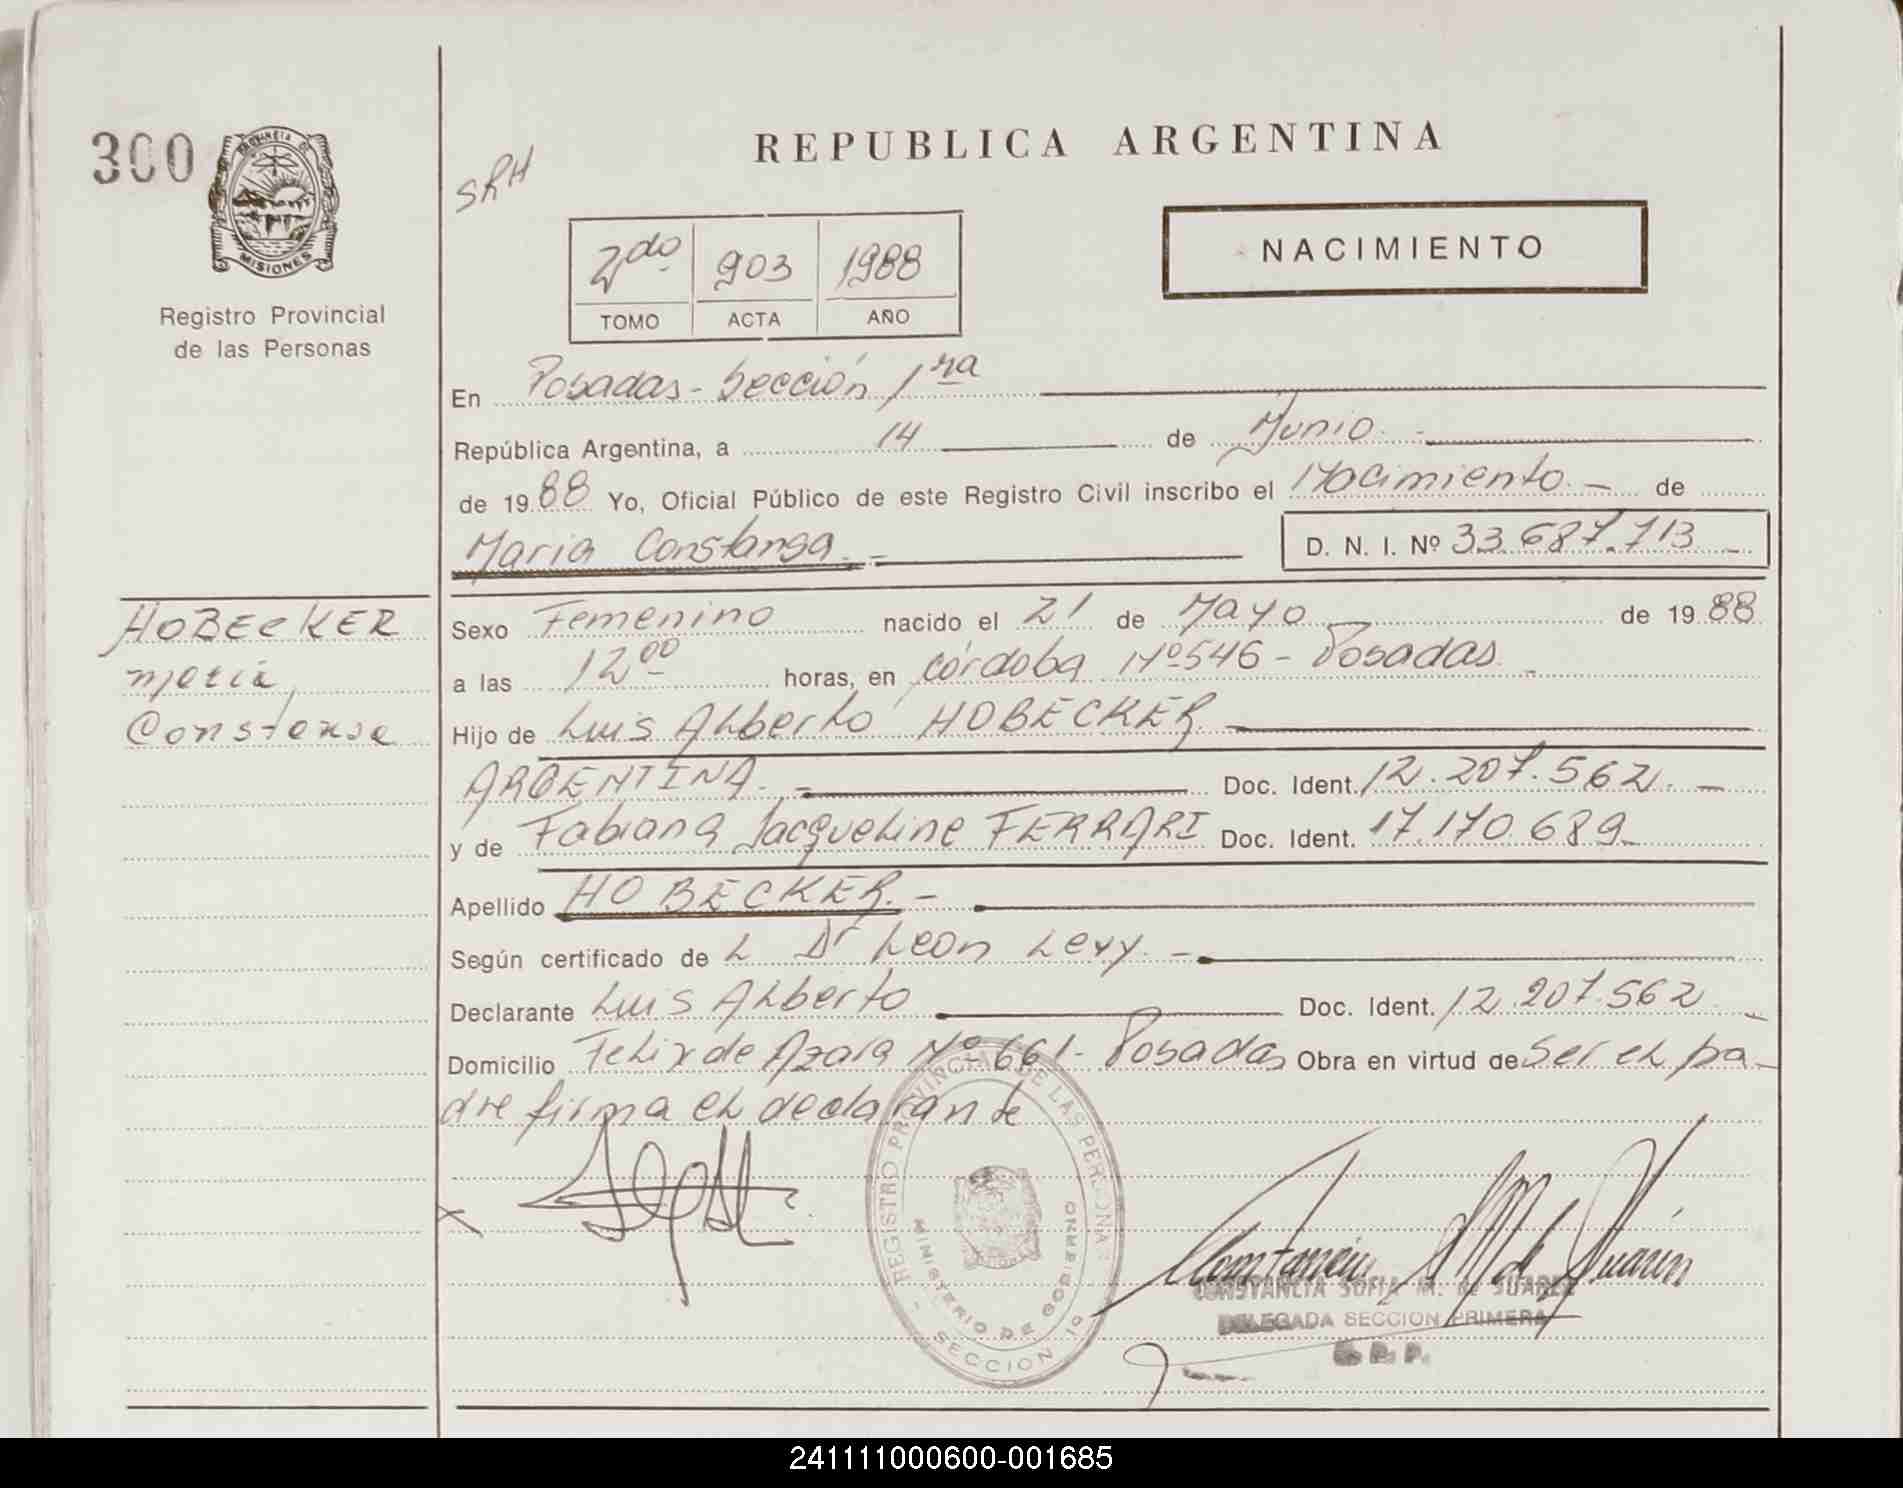 300
PROVINCIA DE
MISIONES
Registro Provincial
de las Personas
SRH
REPUBLICA ARGENTINA
NACIMIENTO
2do 903 1988
TOMO ACTA AÑO
En Posadas - Sección 1ra
República Argentina, a 14 de Junio
de 1988 Yo, Oficial Público de este Registro Civil inscribo el Nacimiento.- de
Maria Constanza.- D. N. I. Nº 33.687.713
HOBECKER
Maria
Constanza
Sexo Femenino nacido el 21 de Mayo de 1988
a las 12 00 horas, en Córdoba Nº 546 - Posadas.
Hijo de Luis Alberto HOBECKER.
ARGENTINA.- Doc. Ident. 12.207.562.-
y de Fabiana Jacqueline FERRARI Doc. Ident. 17.170.689-
Apellido HOBECKER.-
Según certificado de L Dr Leon Levy.-
Declarante Luis Alberto Doc. Ident. 12.207.562
Domicilio Felix de Azara Nº 661 - Posadas Obra en virtud de Ser el pa-
dre firma el declarante
REGISTRO PROVINCIAL DE LAS PERSONAS
MINISTERIO DE GOBIERNO
SECCION 1º
CONSTANCIA SOFIA M. de SUAREZ
DELEGADA SECCION PRIMERA
241111000600-001685